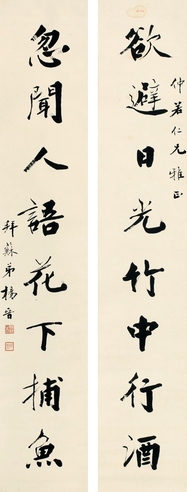 仲若仁兄雅正
欲避日光竹中行酒
忽聞人語花下捕魚
拜蘇弟楊晉